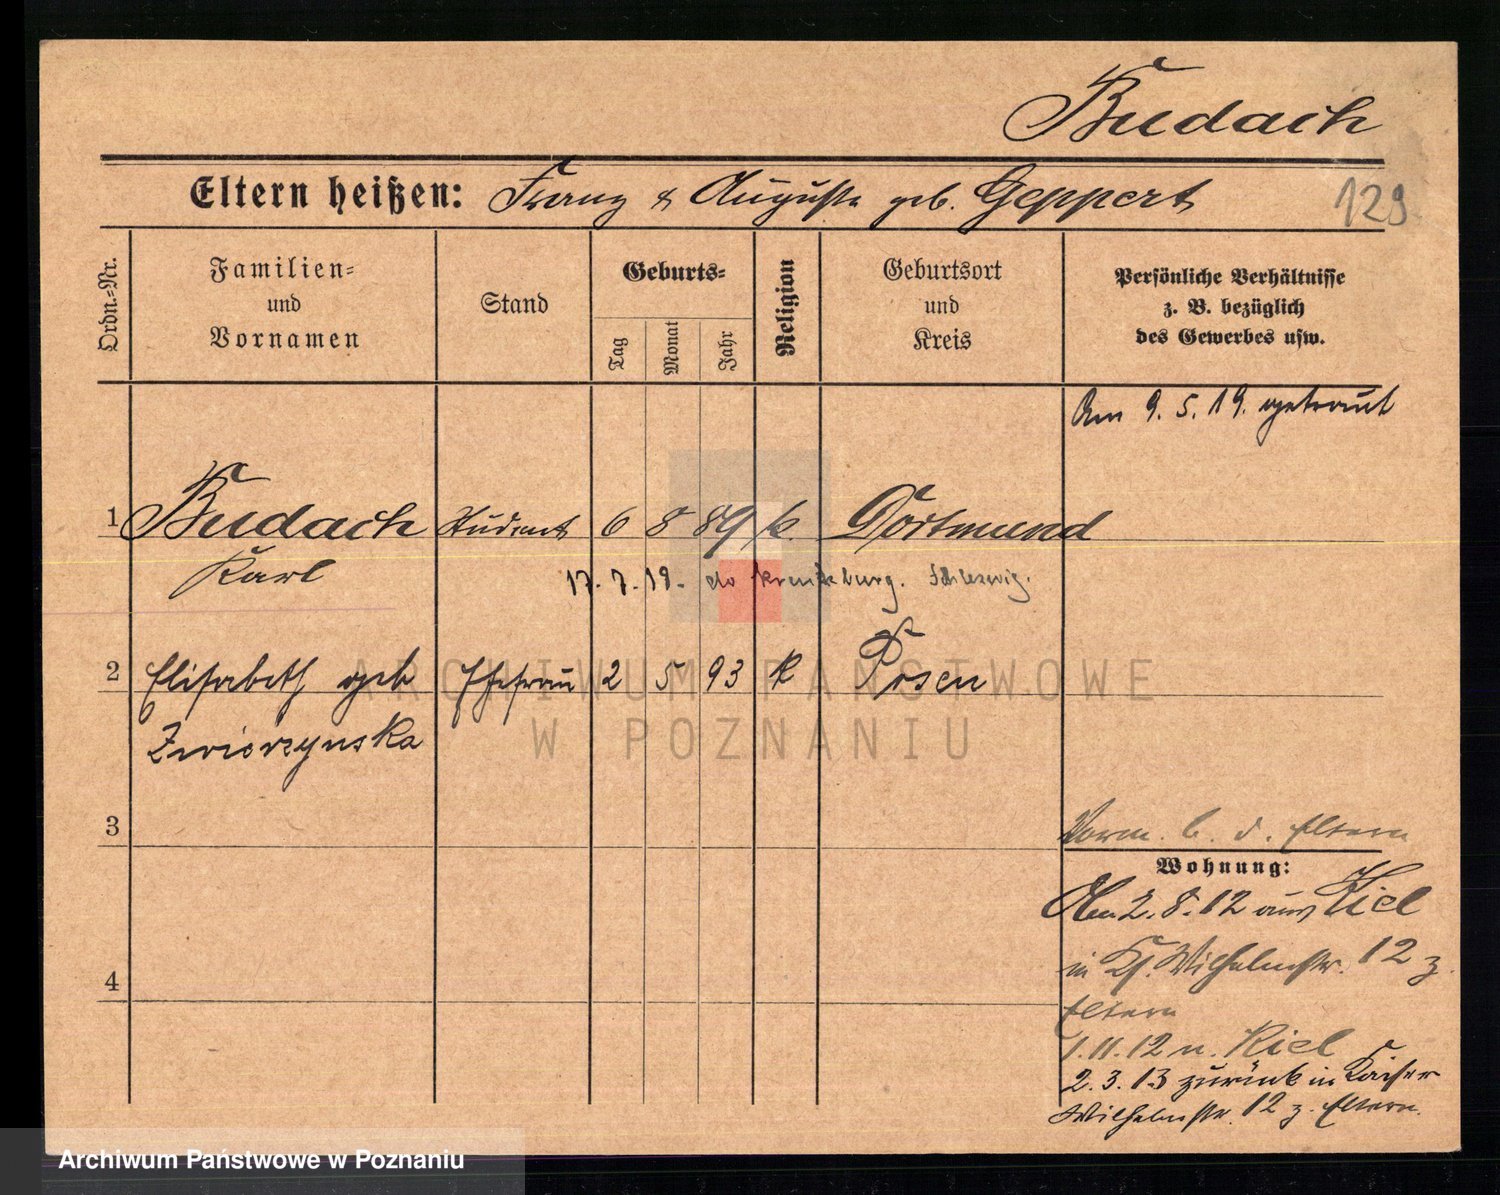 Budach
Eltern heißen: Franz & Auguste geb. Geppert
129
Ordn.-Nr.
Familien-
und
Vornamen
Stand
Geburts-
Tag
Monat
Jahr
Religion
Geburtsort
und
Kreis
Persönliche Verhältnisse
z. B. bezüglich
des Gewerbes usw.
Am 9. 5. 19. getraut
1 Budach Student 6 8 89 k. Dortmund
Karl
17. 7. 19. Kreuzburg. Schleswig.
2 Elisabeth geb Ehefrau 2 5 93 k Posen
Zwierzynska
3
Vorm. b. d. Eltern
Wohnung:
2. 8. 12 aus Kiel
in Ks. Wilhelmstr. 12 z.
Eltern
4
1. 11. 12 n. Kiel
2. 3. 13 zurück in Kaiser
Wilhelmstr. 12 z. Eltern.
ARCHIWUM PAŃSTWOWE
W POZNANIU
Archiwum Państwowe w Poznaniu